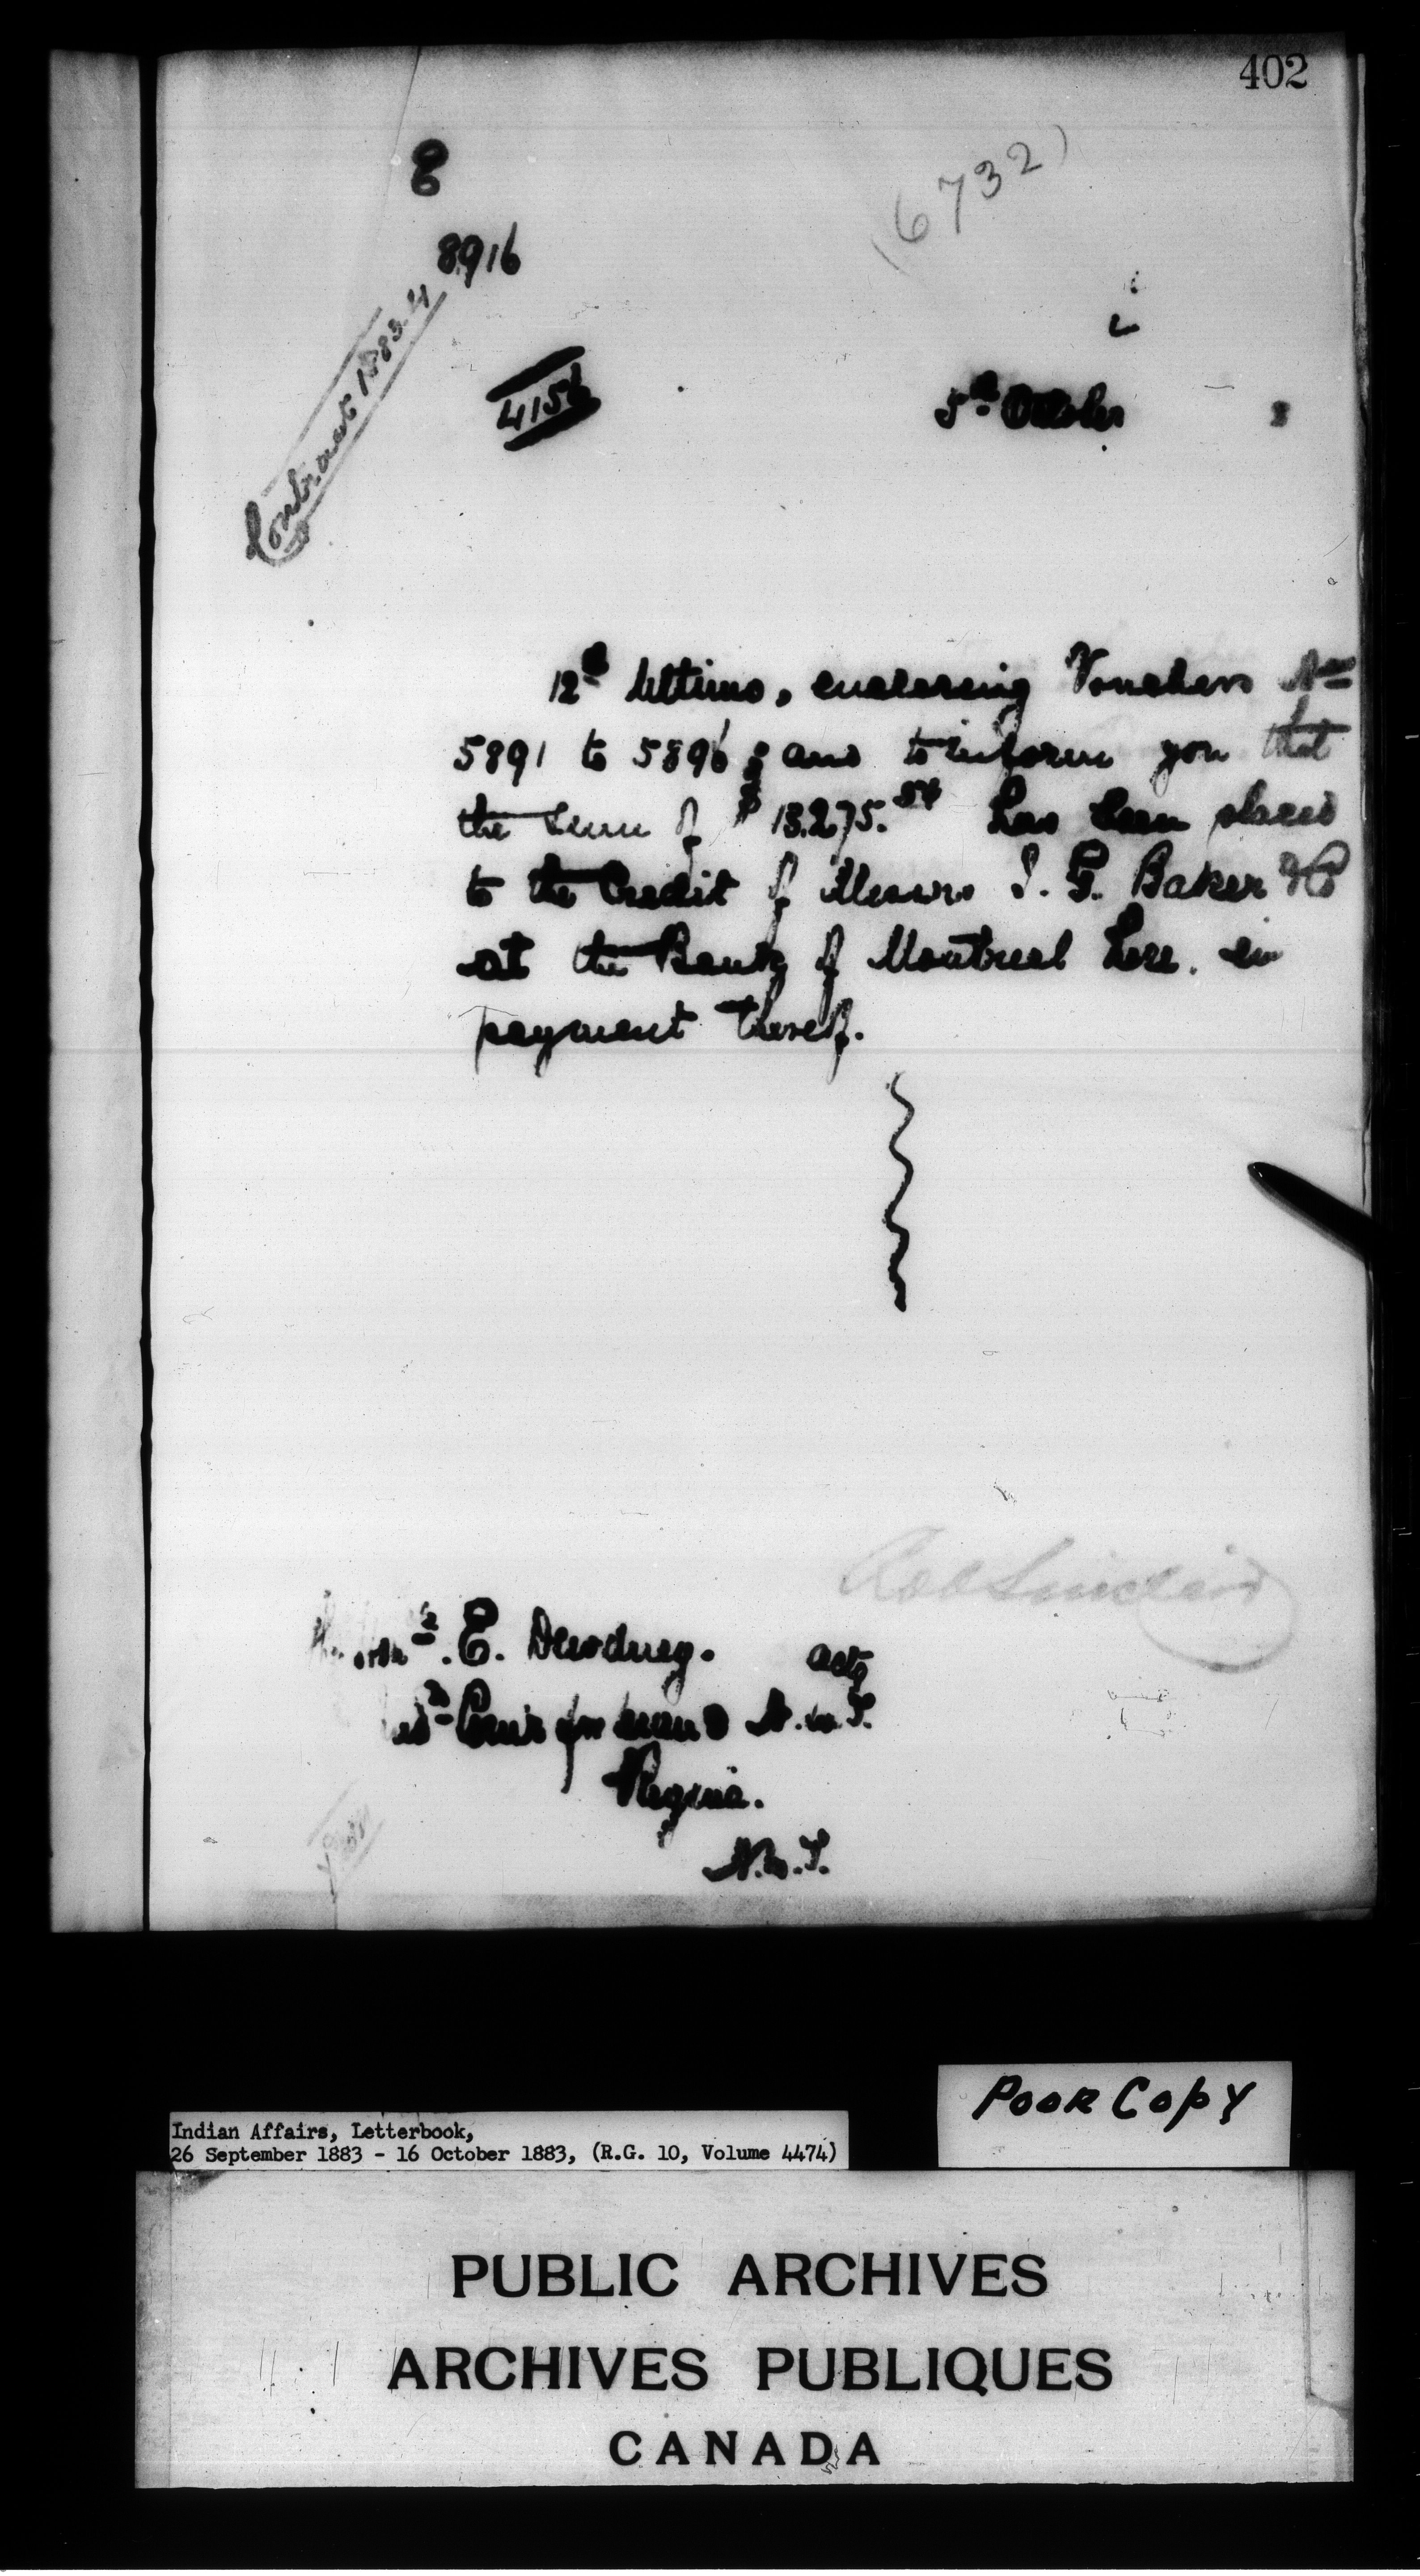 402
E
8916
(6732)
Contract 1883-4
4156
5th October
12th Ultimo, enclosing Vouchers Nos
5891 to 5896; and to inform you that
the Sum of $13.275.54 has been placed
to the Credit of Messrs I. G. Baker & Co
at the Bank of Montreal here. in
payment thereof.
Rob Sinclair
E. Dewdney. actg
Ind Comr for Man & N.W.T.
Regina.
N.W.T.
Poor Copy
Indian Affairs, Letterbook,
26 September 1883 - 16 October 1883, (R.G. 10, Volume 4474)
PUBLIC ARCHIVES
ARCHIVES PUBLIQUES
CANADA